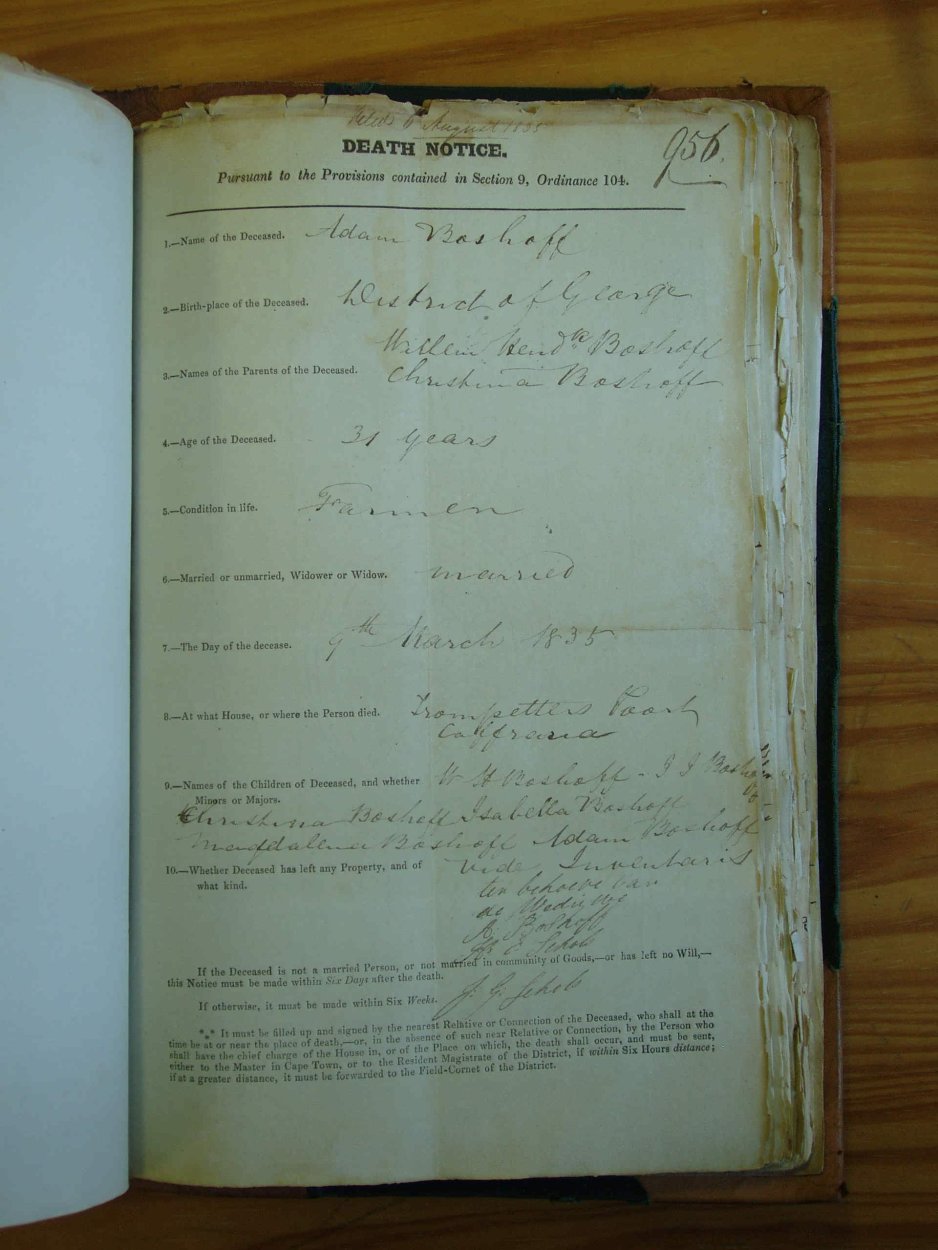 Filed 6 August 1835
956.
DEATH NOTICE.
Pursuant to the Provisions contained in Section 9, Ordinance 104.
1.—Name of the Deceased. Adam Boshoff
2.—Birth-place of the Deceased. District of George
Willem Hendk Boshoff
3.—Names of the Parents of the Deceased. Christina Boshoff
4.—Age of the Deceased. 31 years
5.—Condition in life. Farmer
6.—Married or unmarried, Widower or Widow. married
7.—The Day of the decease. 9th March 1835
8.—At what House, or where the Person died. Trompetters Poort
Caffraria
9.—Names of the Children of Deceased, and whether W H Boshoff - J J Boshoff
Minors or Majors.
Christina Boshoff Isabella Boshoff
Magdalena Boshoff Adam Boshoff
10.—Whether Deceased has left any Property, and of Vide Inventaris
what kind. ten behoeve van
de Weduwe
A Boshoff
If the Deceased is not a married Person, or not married in community of Goods,—or has left no Will,—
this Notice must be made within Six Days after the death.
If otherwise, it must be made within Six Weeks.
*⁎* It must be filled up and signed by the nearest Relative or Connection of the Deceased, who shall at the
time be at or near the place of death,—or, in the absence of such near Relative or Connection, by the Person who
shall have the chief charge of the House in, or of the Place on which, the death shall occur, and must be sent,
either to the Master in Cape Town, or to the Resident Magistrate of the District, if within Six Hours distance;
if at a greater distance, it must be forwarded to the Field-Cornet of the District.